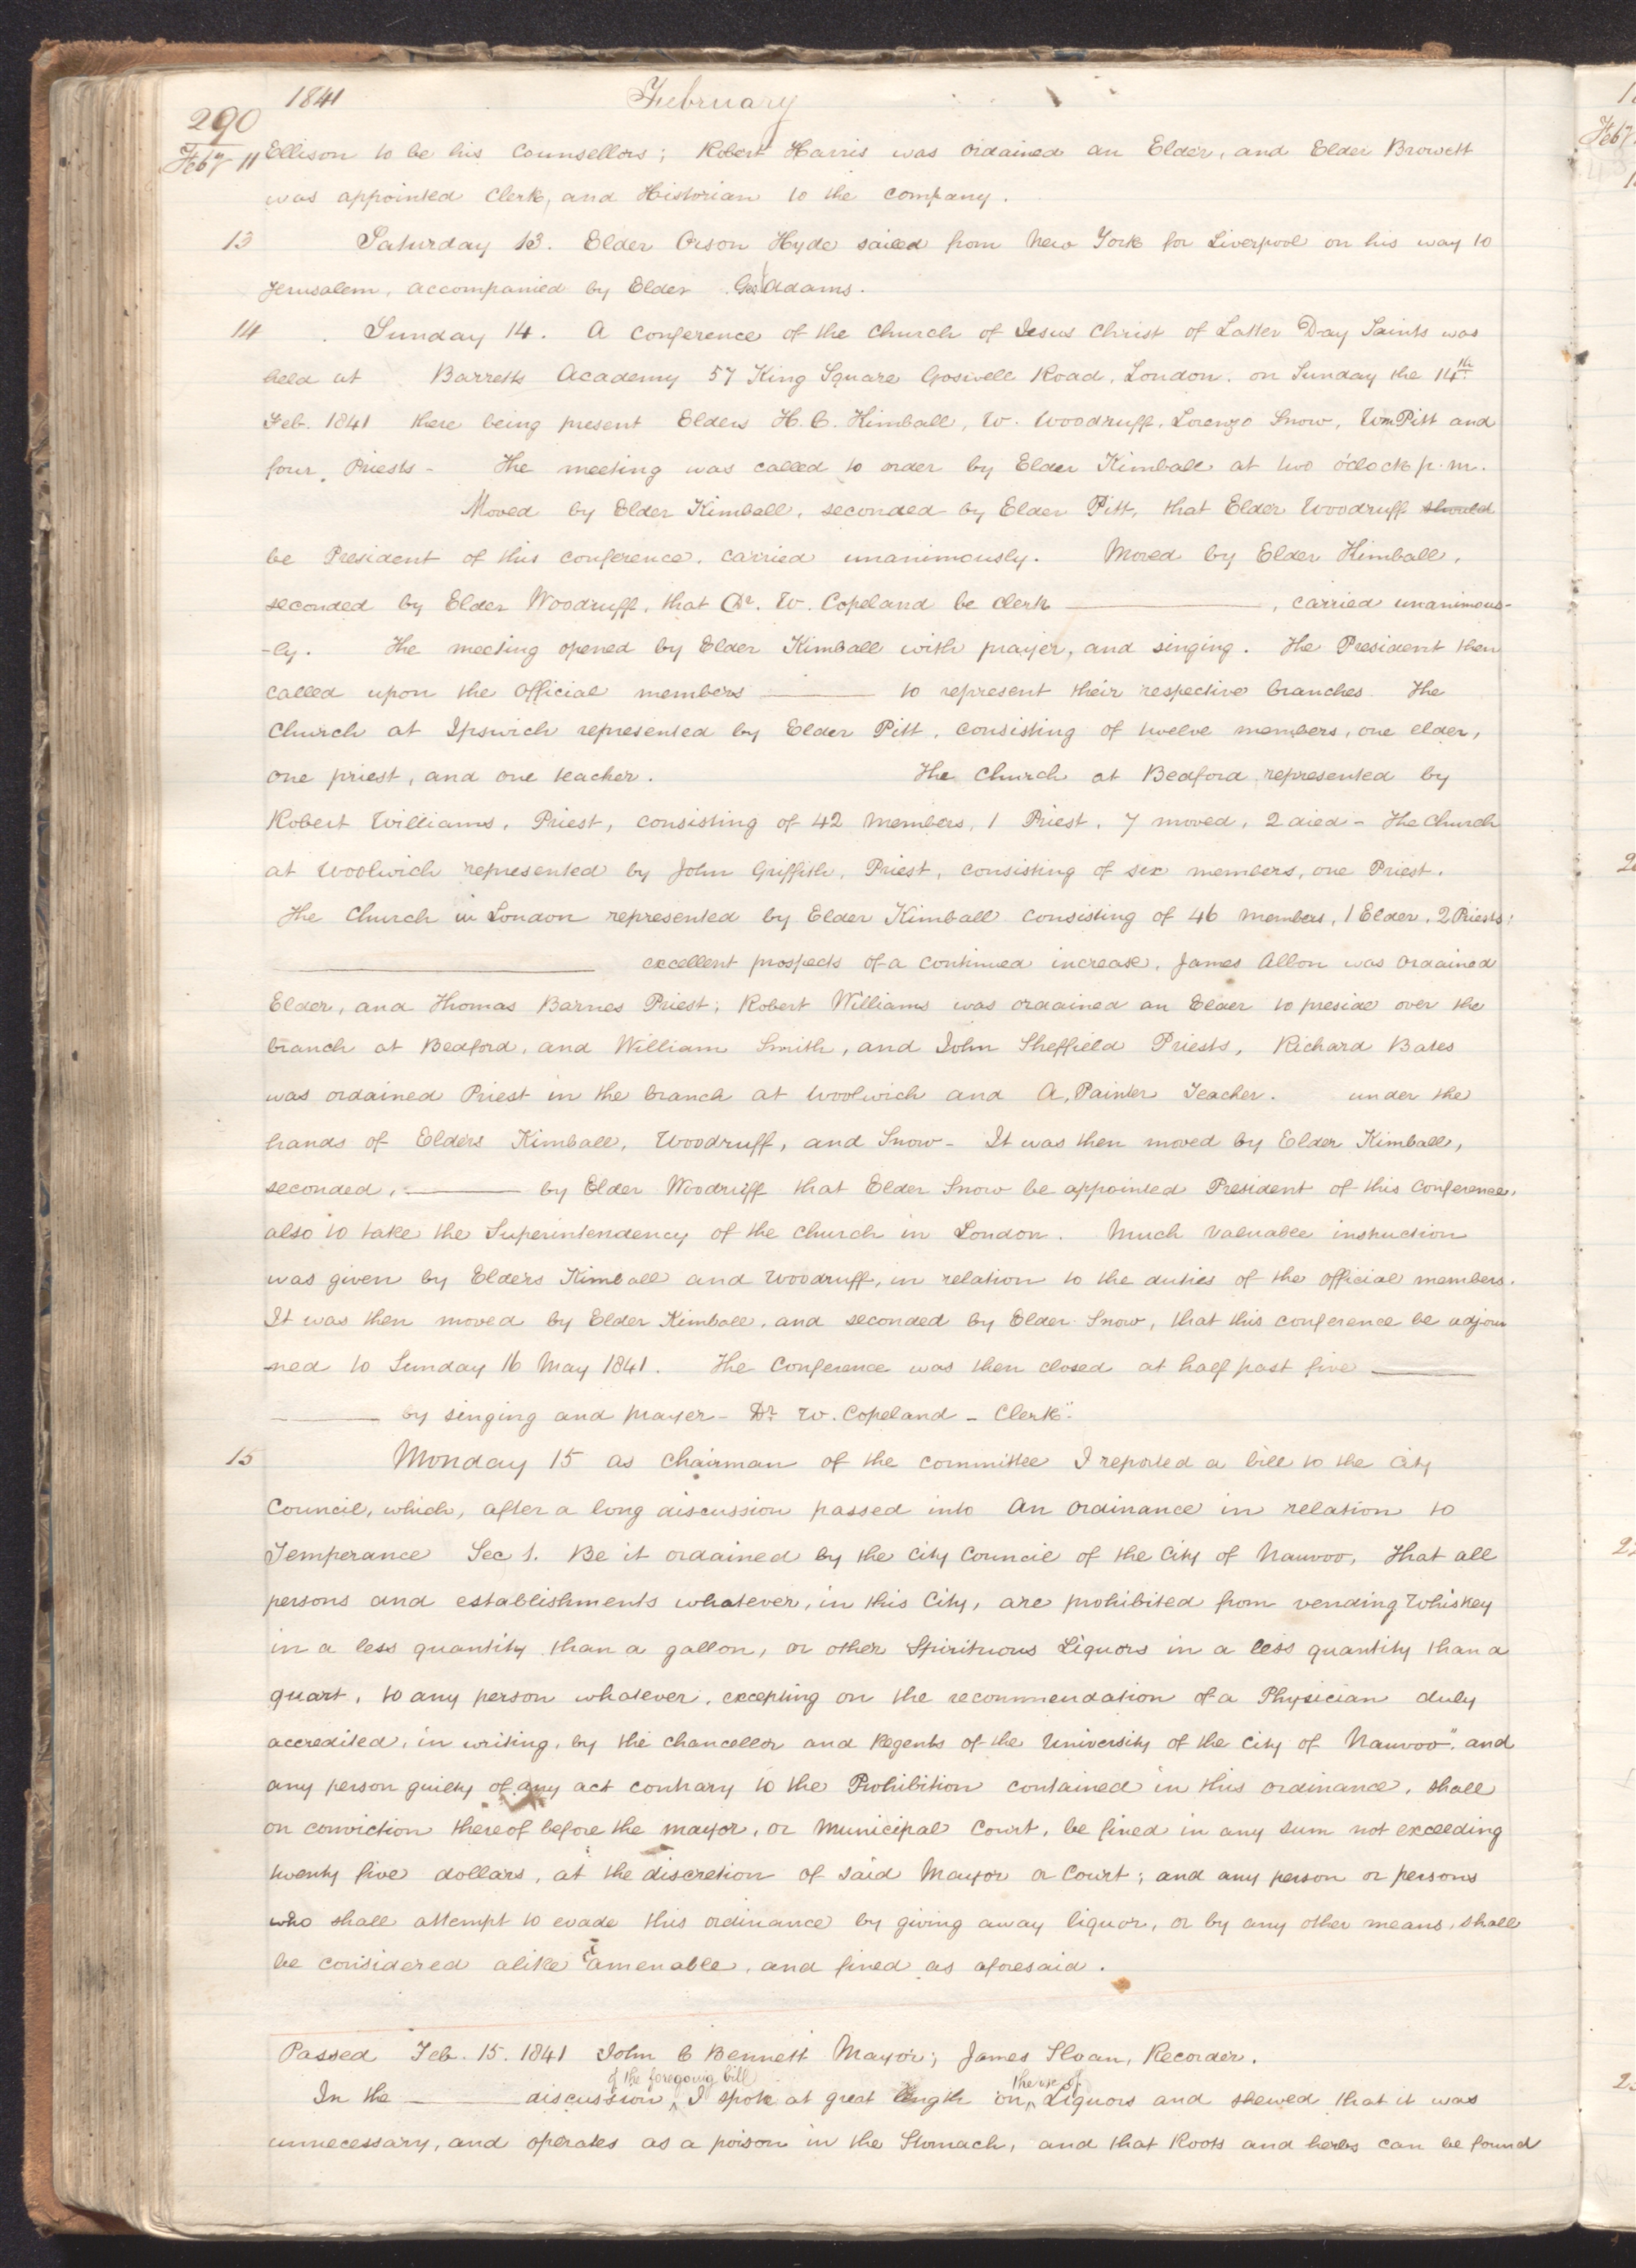 1841 February
290
Feby 11 Ellison to be his Counsellors; Robert Harris was ordained an Elder, and Elder Browett
was appointed Clerk, and Historian to the company.
13 Saturday 13. Elder Orson Hyde sailed from New York for Liverpool on his way to
Jerusalem, accompanied by Elder Geo Adams.
14 Sunday 14. A conference of the Church of Jesus Christ of Latter Day Saints was
held at Barretts Academy 57 King Square Goswell Road, London. on Sunday the 14th
Feb. 1841 there being present Elders H. C. Kimball, W. Woodruff, Lorenzo Snow, Wm Pitt and
four Priests - The meeting was called to order by Elder Kimball at two o'clock p.m.
Moved by Elder Kimball, seconded by Elder Pitt, that Elder Woodruff should
be President of this conference, carried unanimously. Moved by Elder Kimball,
seconded by Elder Woodruff, that Dr. W. Copeland be clerk ———, carried unanimous-
-ly. The meeting opened by Elder Kimball with prayer, and singing. The President then
called upon the official members ——— to represent their respective branches The
Church at Ipswich represented by Elder Pitt, consisting of twelve members, one elder,
one priest, and one teacher. The Church at Bedford represented by
Robert Williams, Priest, consisting of 42 members, 1 Priest, 7 moved, 2 died - The Church
at Woolwich represented by John Griffith, Priest, consisting of six members, one Priest.
The Church in London represented by Elder Kimball consisting of 46 members, 1 Elder, 2 Priests;
——— excellent prospects of a continued increase, James Albon was ordained
Elder, and Thomas Barnes Priest; Robert Williams was ordained an Elder to preside over the
branch at Bedford, and William Smith, and John Sheffield Priests, Richard Bates
was ordained Priest in the branch at Woolwich and A, Painter Teacher. under the
hands of Elders Kimball, Woodruff, and Snow - It was then moved by Elder Kimball,
seconded, ——— by Elder Woodruff that Elder Snow be appointed President of this Conference,
also to take the Superintendency of the church in London. Much valuable instruction
was given by Elders Kimball and Woodruff, in relation to the duties of the official members.
It was then moved by Elder Kimball, and seconded by Elder Snow, that this conference be adjour
-ned to Sunday 16 May 1841. The Conference was then closed at half past five ———
——— by singing and prayer - Dr W. Copeland - Clerk".
15 Monday 15 as Chairman of the committee I reported a bill to the city
Council, which, after a long discussion passed into An Ordinance in relation to
Temperance Sec 1. Be it ordained by the City Council of the City of Nauvoo, That all
persons and establishments whatever, in this City, are prohibited from vending Whiskey
in a less quantity than a gallon, or other Spirituous Liquors in a less quantity than a
quart, to any person whatever, excepting on the recommendation of a Physician duly
accredited, in writing, by the Chancellor and Regents of the University of the City of Nauvoo", and
any person guilty of any act contrary to the Prohibition contained in this ordinance, shall
on conviction thereof before the mayor, or Municipal Court, be fined in any sum not exceeding
twenty five dollars, at the discretion of said Mayor or Court; and any person or persons
who shall attempt to evade this ordinance by giving away liquor, or by any other means, shall
be considered alike amenable, and fined as aforesaid.
Passed Feb. 15. 1841 John C Bennett Mayor; James Sloan, Recorder.
of the foregoing bill the use of
In the ——— discussion ^ I spoke at great length on ^ Liquors and shewed that it was
unnecessary, and operates as a poison in the Stomach, and that Roots and herbs can be found